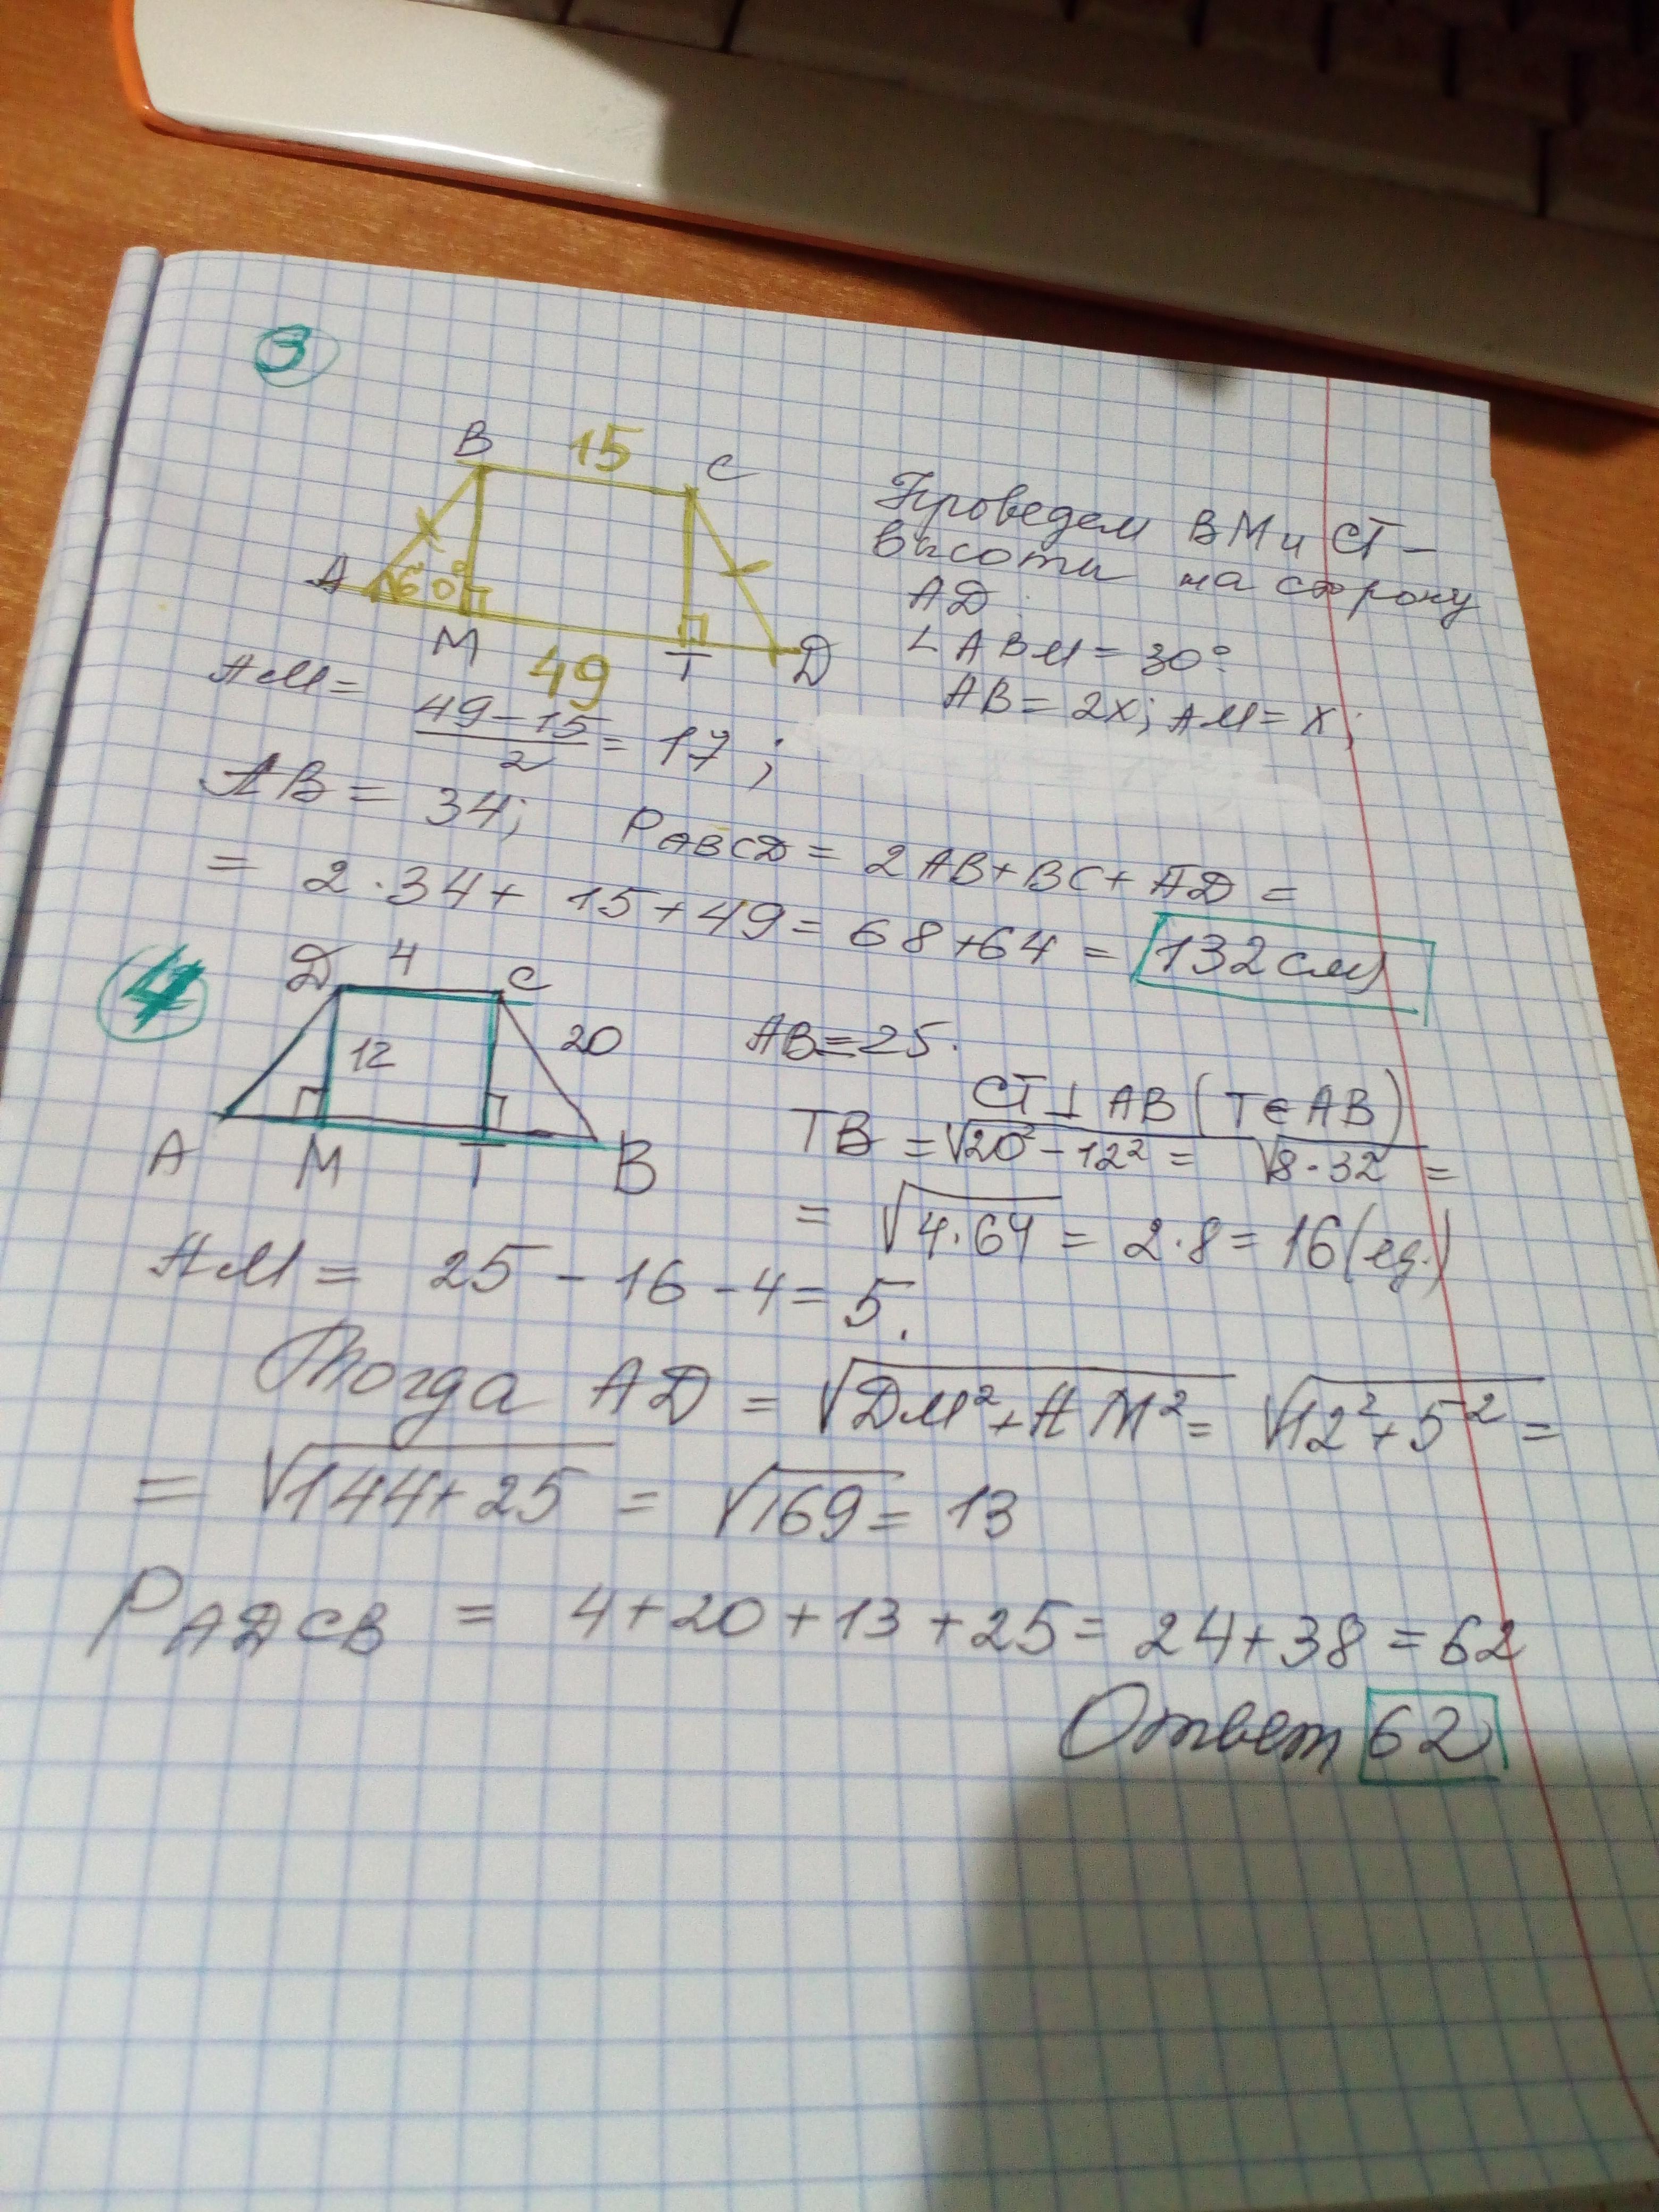 3
B 15 C
A 60° M 49 T D
Проведем BM и CT –
высоты на сторону
AD.
∠ABM = 30°.
AB = 2x; AM = x;
AM = (49-15)/2 = 17;
AB = 34; PABCD = 2AB+BC+AD =
= 2·34+ 15+49= 68+64 = 132 см
4
D 4 C
12 20
A M T B
AB=25.
CT ⊥ AB (T∈AB)
TB = √20²-12² = √8·32 =
= √4·64 = 2·8 = 16(ед.)
AM = 25 - 16 - 4 = 5.
Тогда AD = √DM²+AM² = √12²+5² =
= √144+25 = √169 = 13
PADCB = 4+20+13+25= 24+38 = 62
Ответ 62